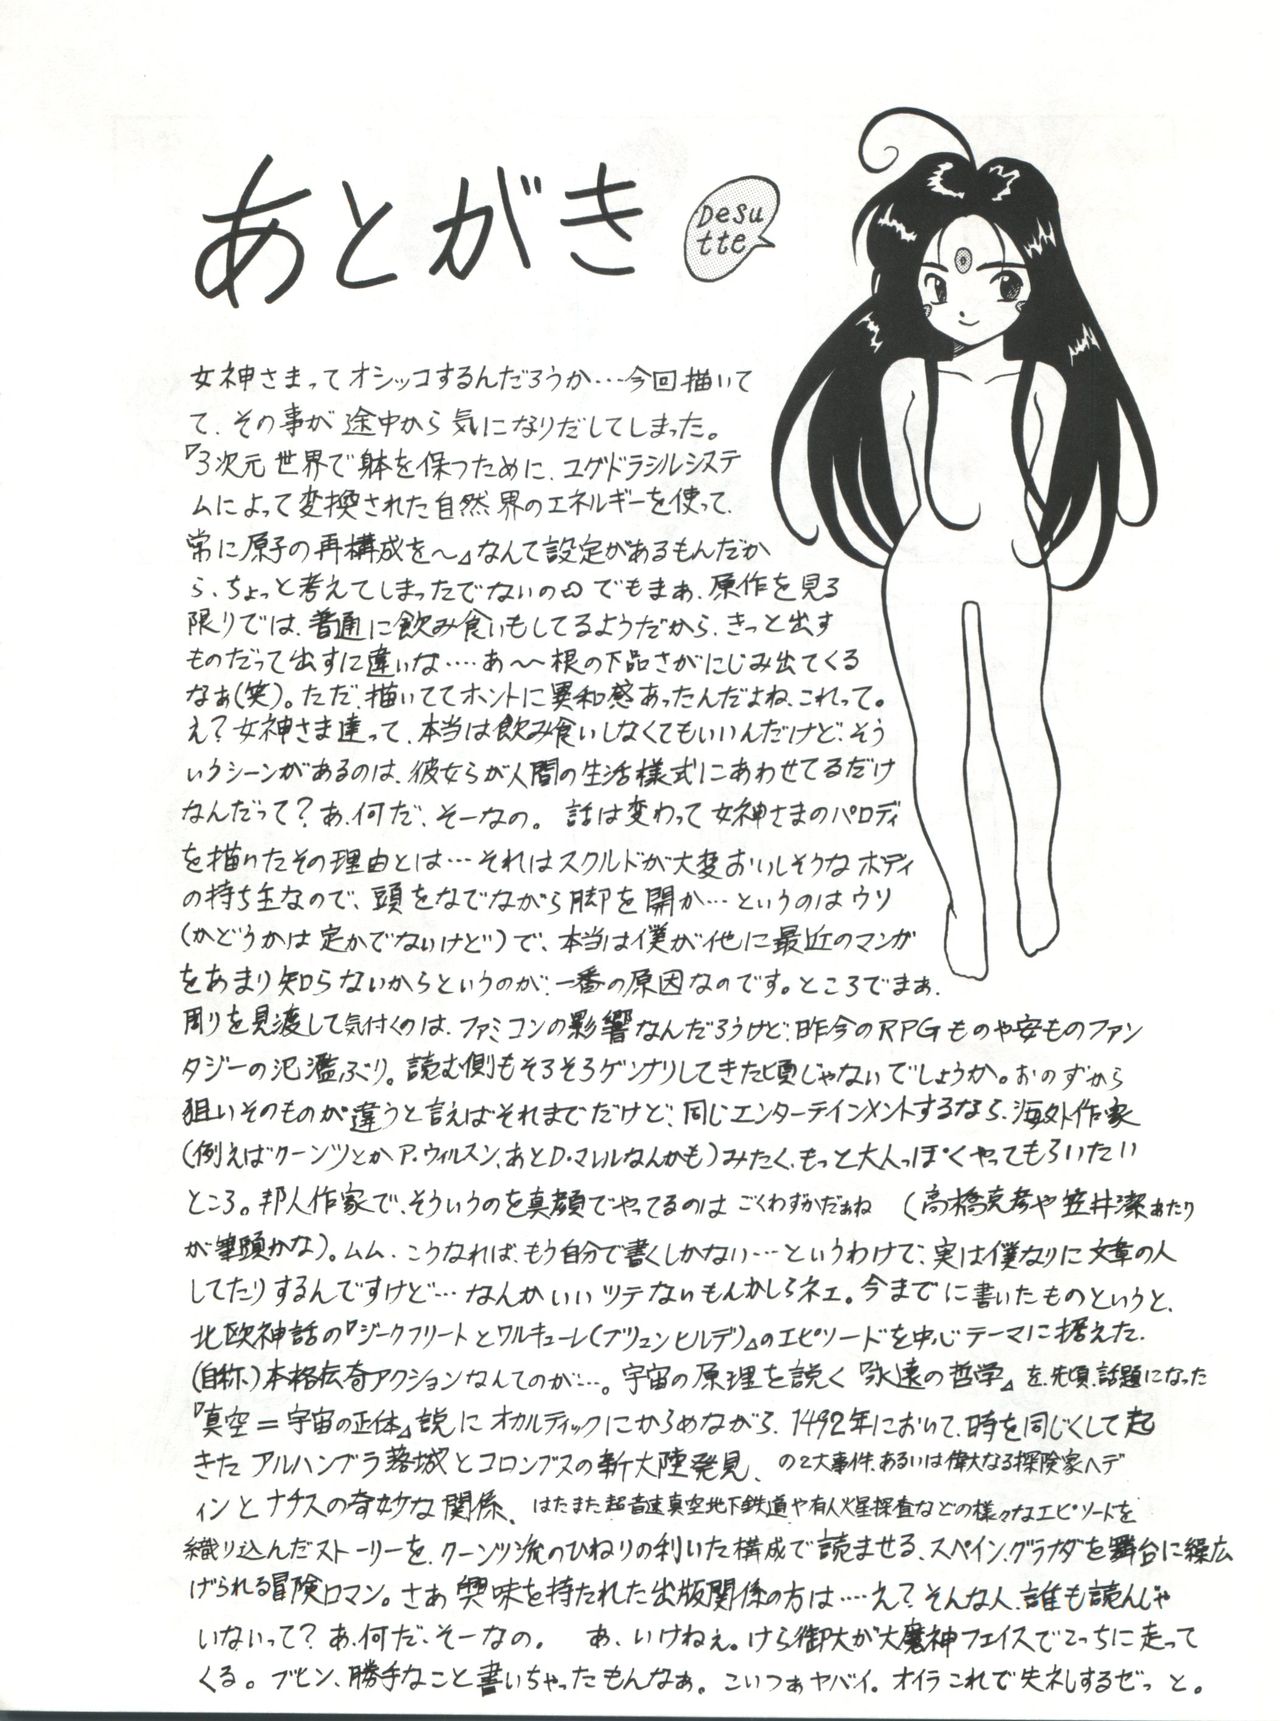 あとがき
Desu
tte
女神さまってオシッコするんだろうか…今回描いて
て、その事が途中から気になりだしてしまった。
『3次元世界で躰を保つために、ユグドラシルシステ
ムによって変換された自然界のエネルギーを使って、
常に原子の再構成を〜』なんて設定があるもんだか
ら、ちょっと考えてしまったでないの でもまぁ、原作を見る
限りでは、普通に飲み食いもしてるようだから、きっと出す
ものだって出すに違いな‥‥あ〜〜根の下品さがにじみ出てくる
なぁ(笑)。ただ、描いててホントに異和感あったんだよね、これって。
え?女神さま達って、本当は飲み食いしなくてもいいんだけど、そう
いうシーンがあるのは、彼女らが人間の生活様式にあわせてるだけ
なんだって?あ、何だ、そーなの。 話は変わって女神さまのパロディ
を描いたその理由とは…それはスクルドが大変おいしそうなボディ
の持ち主なので、頭をなでながら脚を開か…というのはウソ
(かどうかは定かでないけど)で、本当は僕が他に最近のマンガ
をあまり知らないからというのが、一番の原因なのです。ところでまぁ、
周りを見渡して気付くのは、ファミコンの影響なんだろうけど、昨今のRPGものや安ものファン
タジーの氾濫ぶり。読む側もそろそろゲンナリしてきた頃じゃないでしょうか。おのずから
狙いそのものが違うと言えばそれまでだけど、同じエンターテインメントするなら、海外作家
(例えばクーンツとかP・ウィルスン、あとD・マレルなんかも)みたく、もっと大人っぽくやってもらいたい
ところ。邦人作家で、そういうのを真顔でやってるのはごくわずかだぁね (高橋克彦や笠井潔あたり
が筆頭かな)。ムム、こうなれば、もう自分で書くしかない…というわけで、実は僕なりに文章の人
してたりするんですけど…なんかいいツテないもんかしらネェ。今までに書いたものというと、
北欧神話の『ジークフリートとワルキューレ(ブリュンヒルデ)』のエピソードを中心テーマに据えた、
(自称)本格伝奇アクションなんてのが…。宇宙の原理を説く『永遠の哲学』を、先頃、話題になった
『真空=宇宙の正体』説にオカルティックにからめながら、1492年において、時を同じくして起
きたアルハンブラ落城とコロンブスの新大陸発見、の2大事件、あるいは偉大なる探険家ヘデ
ィンとナチスの奇妙な関係、はたまた超音速真空地下鉄道や有人火星探査などの様々なエピソードを
織り込んだストーリーを、クーンツ流のひねりの利いた構成で読ませる、スペイン、グラナダを舞台に繰広
げられる冒険ロマン。さあ興味を持たれた出版関係の方は‥‥え?そんな人、誰も読んじゃ
いないって?あ、何だ、そーなの。 あ、いけねぇ。けら御大が大魔神フェイスでこっちに走って
くる。ブヒン、勝手なこと書いちゃったもんなぁ。こいつぁヤバイ。オイラこれで失礼するぜっ と。